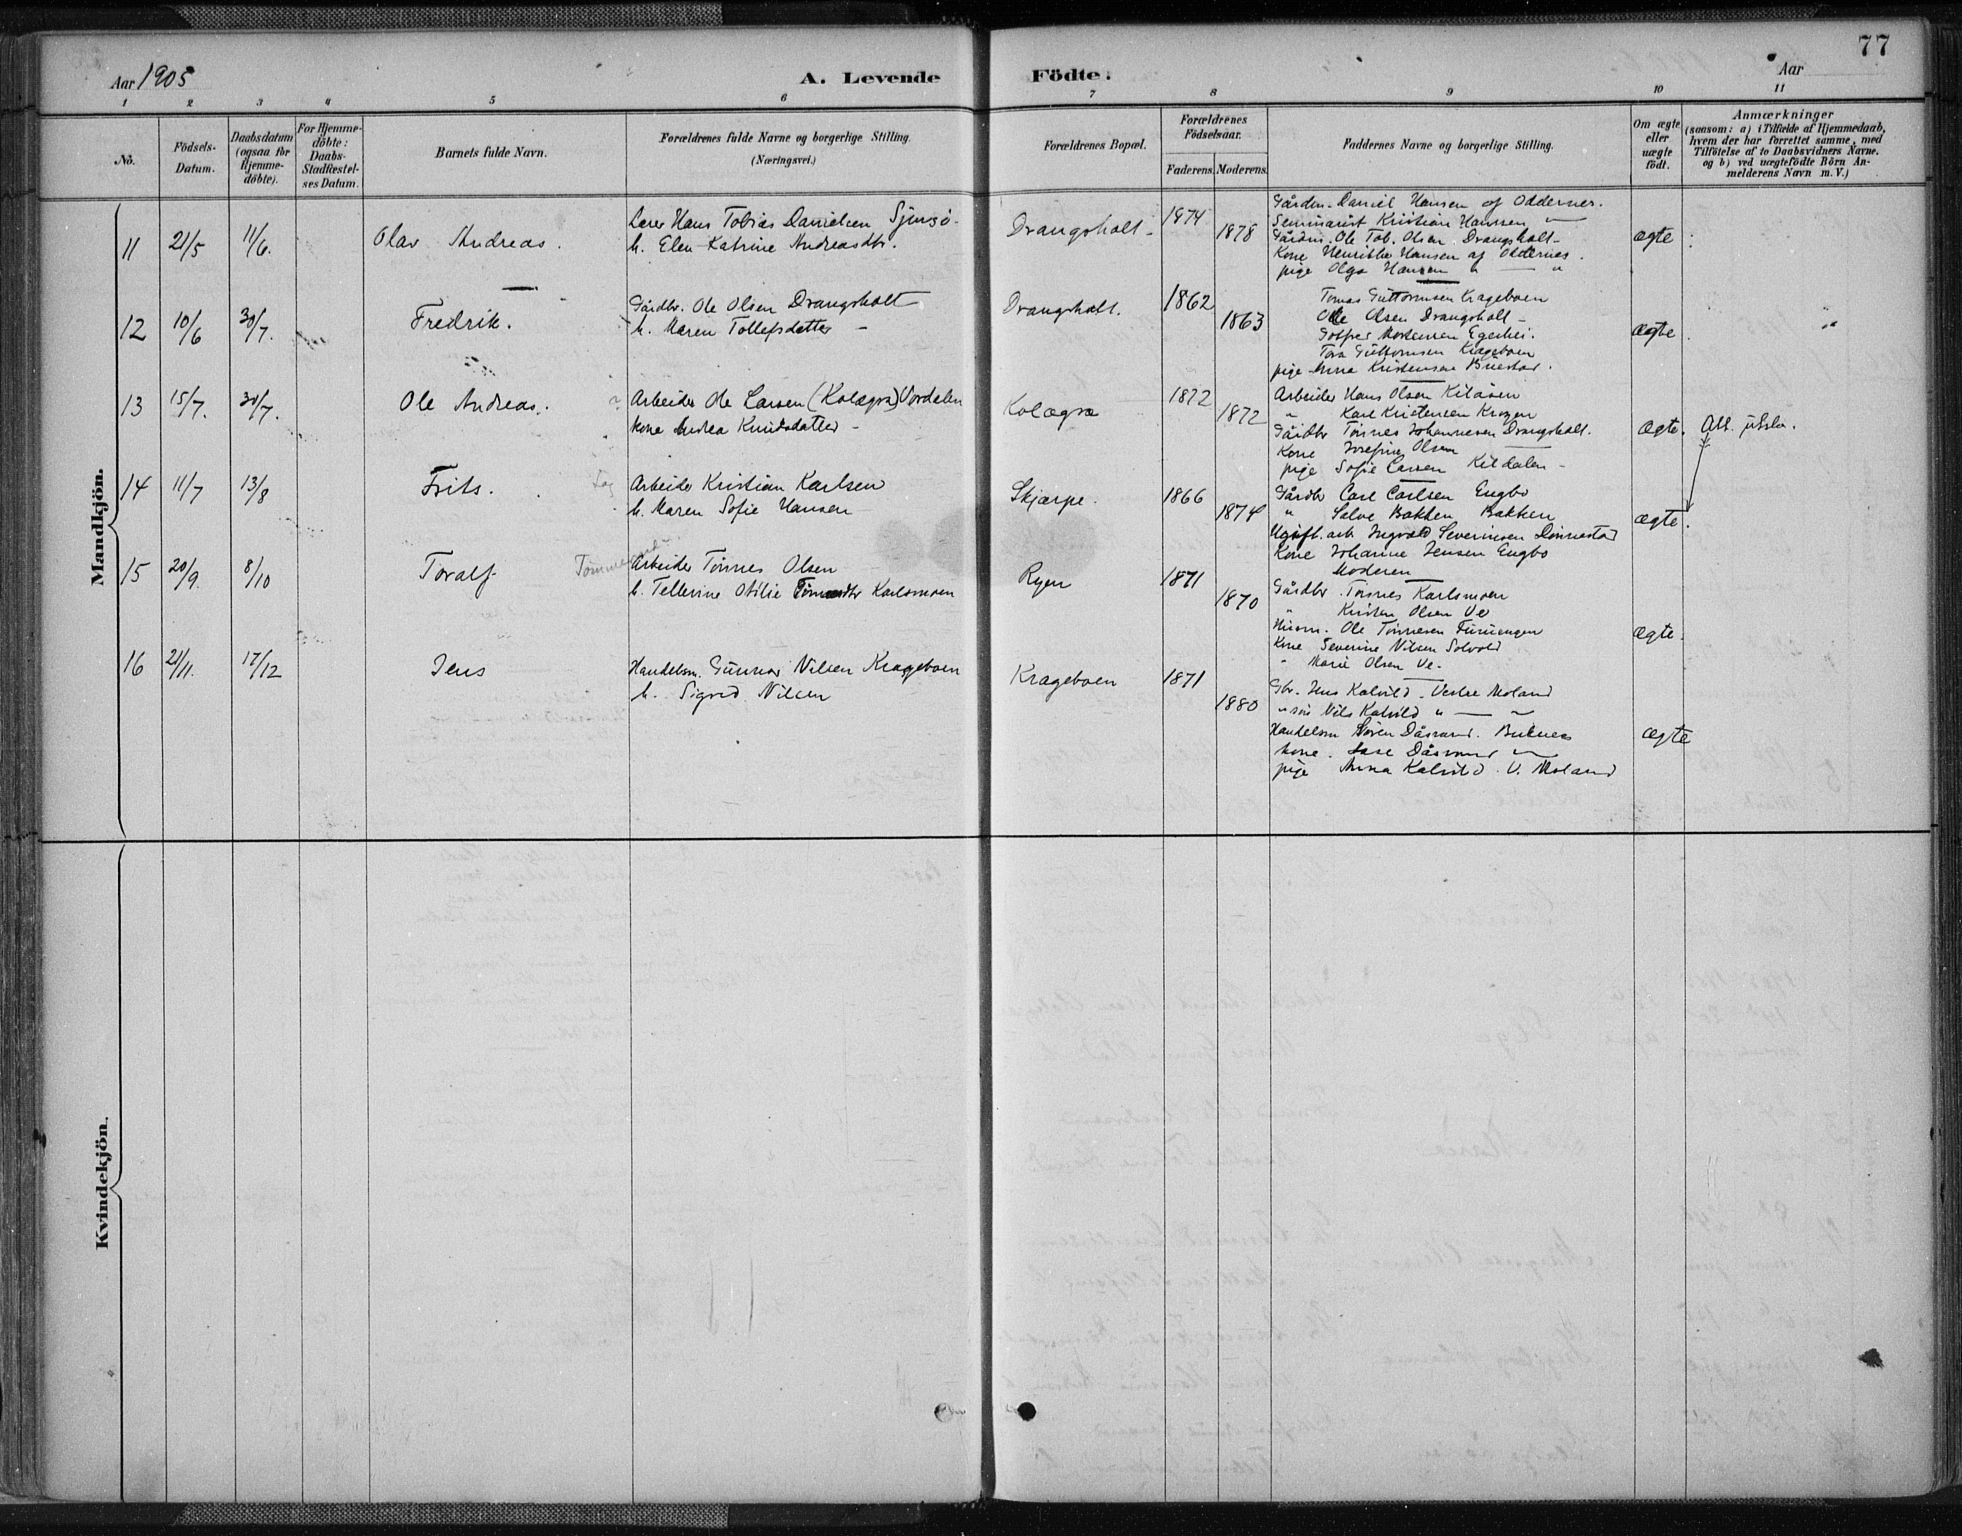 77
Aar 1905
A. Levende Födte.
Aar
1 2 3 4 5 6 7 8 9 10 11
No.
Födsels-Datum.
Daabsdatum (ogsaa for Hjemme-döbte).
For Hjemme-döbte: Daabs-Stadfæstel-ses Datum.
Barnets fulde Navn.
Forældrenes fulde Navne og borgerlige Stilling.
(Næringsvei.)
Forældrenes Bopæl.
Forældrenes Födselsaar.
Faderens. Moderens.
Faddernes Navne og borgerlige Stilling.
Om ægte eller uægte født.
Anmærkninger
(saasom: a) i Tilfælde af Hjemmedaab,
hvem der har forrettet samme, med
Tilföielse af to Daabsvidners Navne.
og b) ved uægtefödte Börn An-
melderens Navn m. V.)
Mandkjön.
11 21/5 11/6. Olav Andreas.
Lærer Hans Tobias Danielsen
h. Elen Katrine Andreasdtr.
Drangsholt 1874 1878
Daniel Hansen af Oddernes.
Seminarist Kristian Hanssen
Gårdm. Ole Tob. Olsen Drangsholt
Kone Henrikke Hansen af Oddernes.
pige Olga Hansen
ægte
12 10/6 30/7. Fredrik.
Gårdbr. Ole Olsen Drangsholt
h. Maren Tollefsdatter
Drangsholt. 1862 1863
Tomas Guttormsen Krageboen
Ole Olsen Drangsholt
Mortensen
Tora Guttormsen Krageboen
pige Anna Kristensen
ægte
13 15/7. 30/7. Ole Andreas.
Arbeider Ole Larsen (Kolægra) Vordalen
kone Andrea Knudsdatter
Kolægra 1872 1872
Arbeider Hans Olsen Kilåsen
" Karl Kristensen
Gårdbr Tönnes Johannesen Drangsholt.
Kone Josefine Olsen
pige Sofie Larsen Kildalen
ægte.
14 11/7 13/8 Frits.
Arbeider Kristian Karlsen
h. Maren Sofie Hansen
Skjærpe. 1866 1874
Gårdbr Carl Carlsen Engbo
" Salve Bakken Bakken
Ugift. arb. Ingvald Severinsen
Kone Johanne Jensen Engbo
Moderen
ægte.
15 20/9. 8/10 Toralf
Arbeider Tönnes Olsen
h. Tellerine Otilie Karlsmoen
Ryen 1871 1870
Gårdbr. Tönnes Karlsmoen
" Kristen Olsen Ve
Husm. Ole Tönnesen Furuengen
Kone Severine Nilsen Solvold
" Marie Olsen Ve.
ægte.
16 21/11. 17/12 Jens
Handelsm. Gunnar Nilsen Krageboen
h. Sigrid Nilsen
Krageboen 1871 1880
Gbr. Jens Kalvild. Vestre Moland
Nils Kalvild
Handelsm Sören Dåsvand.
kone. Dåsvand
pige Anna Kalvild. V. Moland
ægte
Kvindekjön.